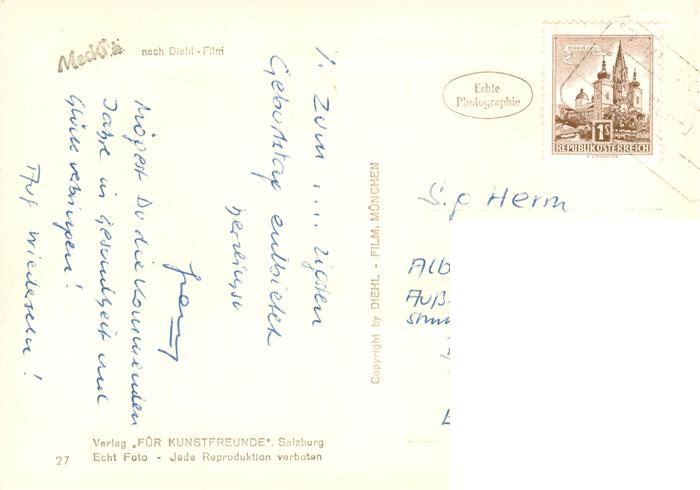 Mecki
nach Diehl - Film
1. Zum .... zigsten
Geburtstag entbietet
herzlingst
Mögest Du die kommenden
Jahre in Gesundheit und
Glück verbringen!
Auf Wiedersehn!
Verlag „FÜR KUNSTFREUNDE", Salzburg
27 Echt Foto - Jede Reproduktion verboten
Copyright by DIEHL - FILM, MÜNCHEN
Echte
Photographie
MARIAZELL
1S
REPUBLIK ÖSTERREICH
S.g. Herrn
Alb
Auß